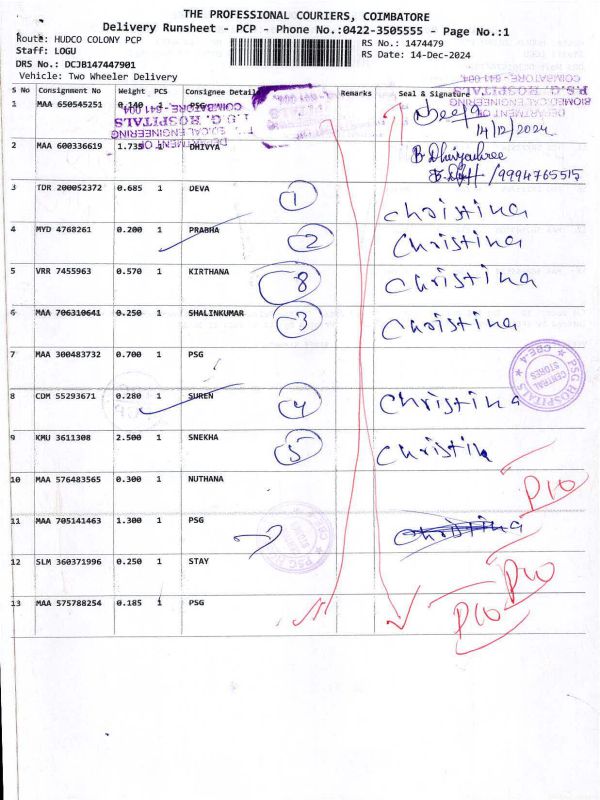 THE PROFESSIONAL COURIERS, COIMBATORE
Delivery Runsheet - PCP - Phone No.:0422-3505555 - Page No.:1
Route: HUDCO COLONY PCP
Staff: LOGU
RS No.: 1474479
DRS No.: DCJB147447901
RS Date: 14-Dec-2024
Vehicle: Two Wheeler Delivery
S No Consignment No Weight PCS Consignee Detail Remarks Seal & Signature
1 MAA 650545251 0.140 1 PSG
14/12/2024
P.S.G. HOSPITALS
BIOMEDICAL ENGINEERING
DEPARTMENT OF
COIMBATORE - 641 004.
2 MAA 600336619 1.735 1 DHIVYA B Dhivyashree
/9994765515
3 TDR 200052372 0.685 1 DEVA 1 Christina
4 MYD 4768261 0.200 1 PRABHA 2 Christina
5 VRR 7455963 0.570 1 KIRTHANA 8 Christina
6 MAA 706310641 0.250 1 SHALINKUMAR 3 Christina
7 MAA 300483732 0.700 1 PSG
PSG HOSPITALS
CENTRAL STORES
CBE-4
8 CDM 55293671 0.280 1 SUREN 4 Christina
9 KMU 3611308 2.500 1 SNEKHA 5 Christin
10 MAA 576483565 0.300 1 NUTHANA P10
11 MAA 705141463 1.300 1 PSG Christina
12 SLM 360371996 0.250 1 STAY P10
13 MAA 575788254 0.185 1 PSG P10